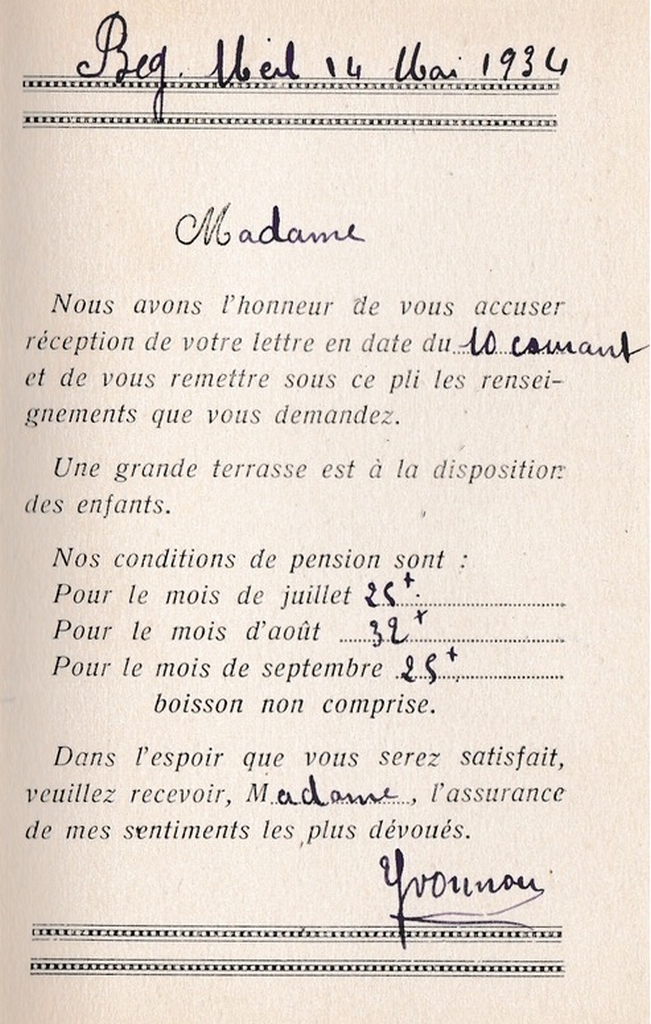 Beg. Meil 14 Mai 1934
Madame
Nous avons l'honneur de vous accuser
réception de votre lettre en date du 10 courant
et de vous remettre sous ce pli les rensei-
gnements que vous demandez.
Une grande terrasse est à la disposition
des enfants.
Nos conditions de pension sont :
Pour le mois de juillet 25+
Pour le mois d'août 32+
Pour le mois de septembre 25+
boisson non comprise.
Dans l'espoir que vous serez satisfait,
veuillez recevoir, Madame, l'assurance
de mes sentiments les plus dévoués.
Yvonnou